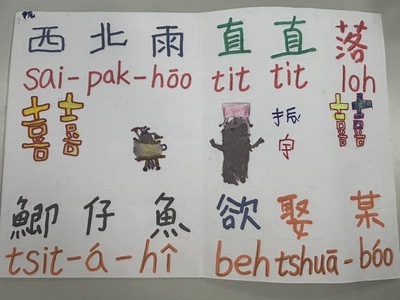 西北雨直直落
sai-pak-hōo tit tit loh
囍 囍
振宇
鯽仔魚欲娶某
tsit-á-hî beh tshuā-bóo